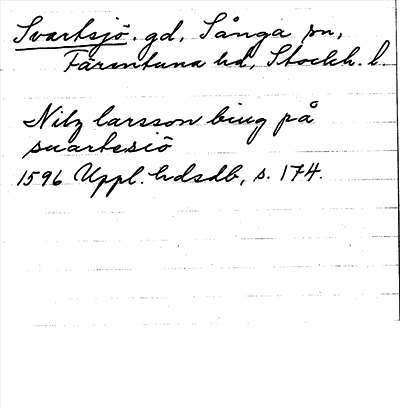 Svartsjö. gd, Sånga sn,
Färentuna hd, Stockh. l.
Nilz larsson biug på
suartesiö
1596 Uppl. hdsdb, s. 174.